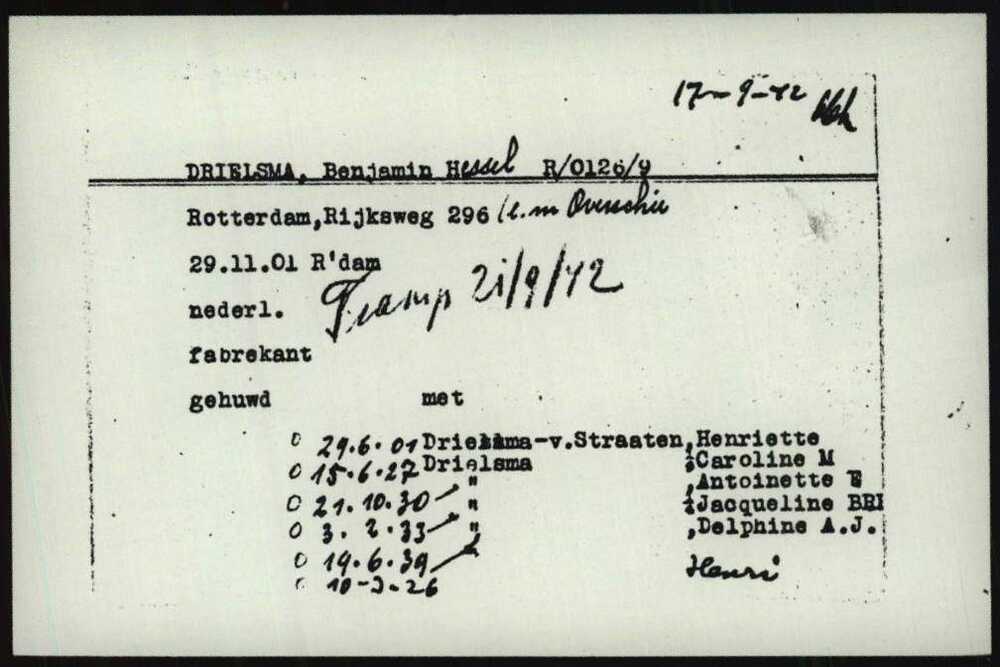 17-9-42
DRIELSMA, Benjamin Hessel R/0126/9
Rotterdam,Rijksweg 296 Overschie
29.11.01 R'dam
nederl.
21/9/42
fabrekant
gehuwd met
0 29.6.01 Drielsma-v.Straaten,Henriette
0 15.6.27 Drielsma ,Caroline M
0 21.10.30 " ,Antoinette E
0 3.2.33 " ,Jacqueline
0 19.6.39 ,Delphine A.J.
Henri